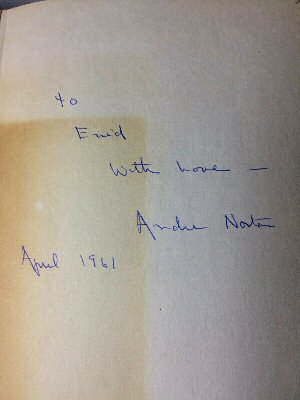 to
Enid
With love —
Andre Norton
April 1961